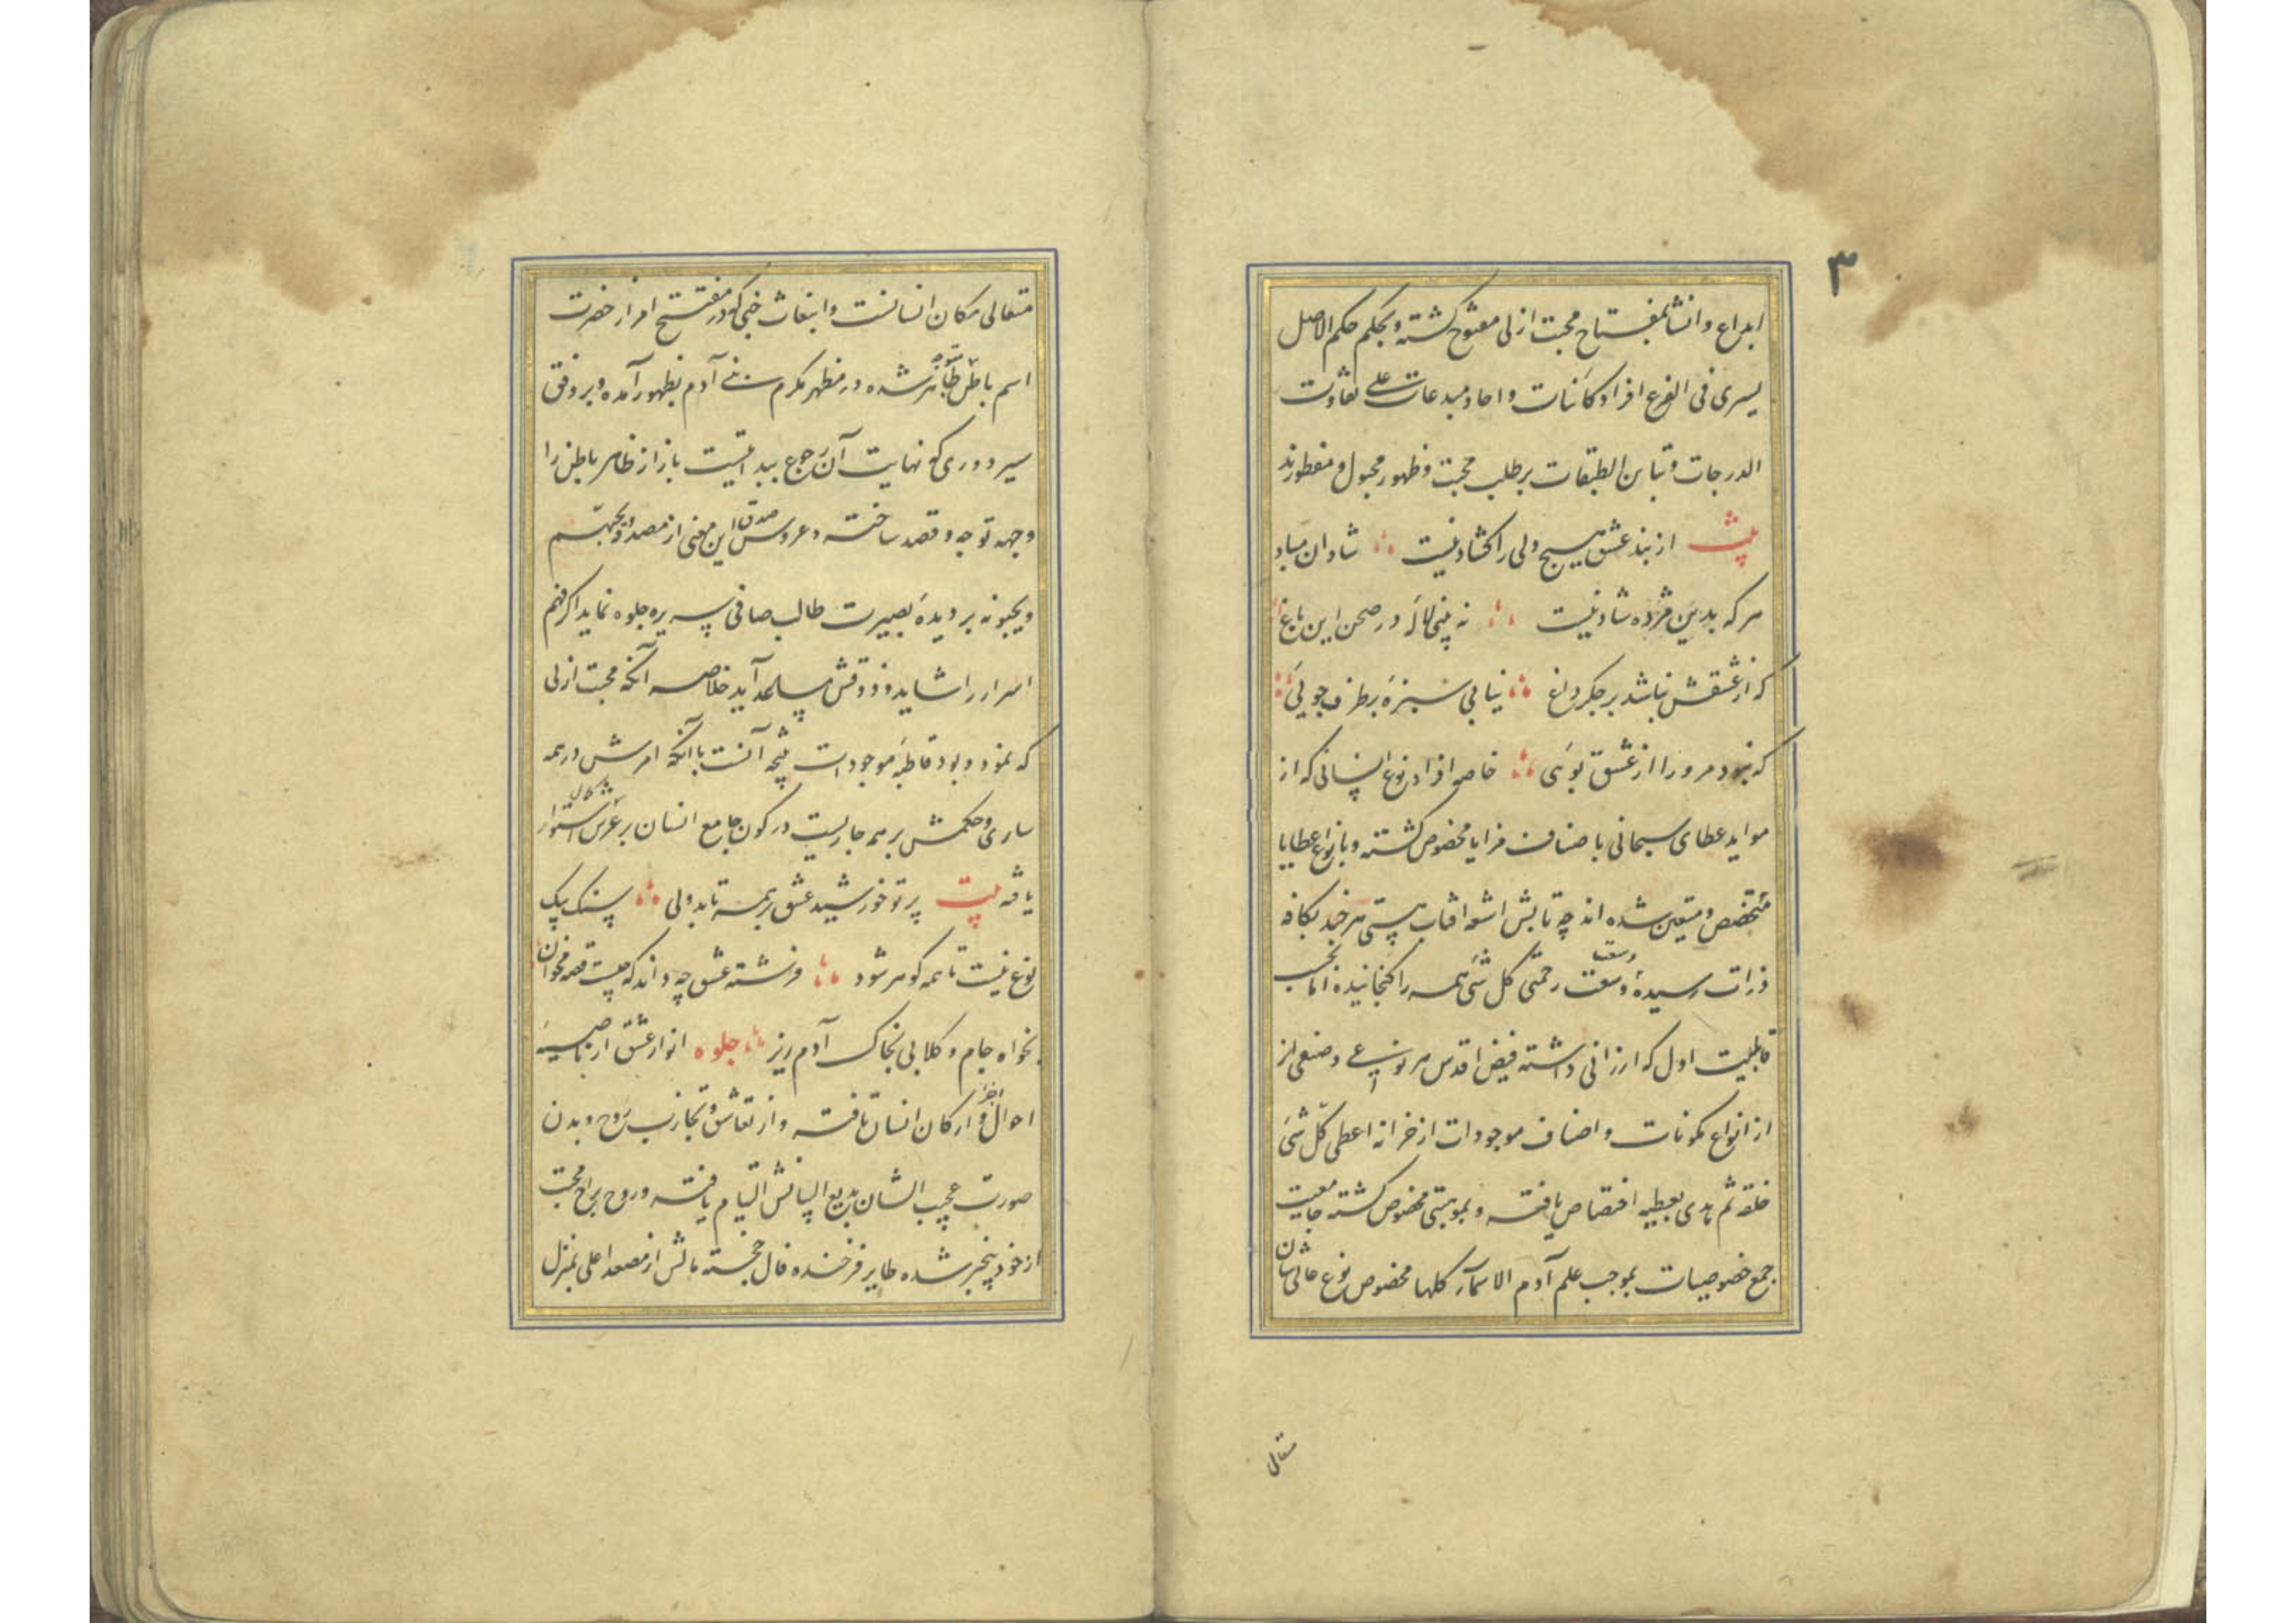 ۳
ابداع و انشا بمفتاح محبت ازلی مفتوح کشته و بحکم حکم الاصل
یسری فی الفرع افراد کائنات و احاد مبدعات علی تفاوت
الدرجات و تباین الطبقات بر طلب محبت و ظهور مجبول و مفطورند
بیت از بند عشق هیچ دلی را کشاد نیست شادان مباد
هر که بدین مژده شاد نیست نه بینی لاله در صحن این باغ
که از عشقش نباشد بر جکر داغ نیابی سبزه بر طرف جویی
که نبود مر ورا از عشق بویی خاصه افراد نوع انسانی که از
مواید عطای سبحانی باصناف مزایا مخصوص کشته و بانواع عطایا
متخصص و متعین شده اند چه تابش اشعه افتاب هستی هر چند بکافه
ذرات رسیده و سعت رحمتی کل شی همه را کنجانیده اما بحسب
وسعت
قابلیت اول که ارزانی داشته فیض اقدس هر نوعی و صنفی از
از انواع مکونات و اصناف موجودات از خزانه اعطی کل شی
خلقه ثم هدی بعطیه اختصاص یافته و بموهبتی مخصوص کشته جامعیت
جمع خصوصیات بموجب علم آدم الاسماء کلها مخصوص نوع عالی شان
متعالی
متعالی مکان انسانست و انبعاث حبی که در مفتتح امر از حضرت
اسم باطن ظاهر شده در مظهر مکرم بنی آدم بظهور آمده و بر وفق
سیر دوری که نهایت آن رجوع ببدایتست باز از ظاهر باطن را
وجهه توجه و قصد ساخته و عروس صدق این معنی از مصدر یحبهم
و یحبونه بر دیده بصیرت طالب صافی سریره جلوه نماید اکر فهم
اسرار را شاید و ذوقش مساعد آید خلاصه آنکه محبت ازلی
که نمود و بود قاطبه موجودات نتیجه آنست با آنکه امرش در همه
ساری و حکمش بر همه جاریست در کون جامع انسان بر عرش استوار
یافه بیت پرتو خورشید عشق بر همه تابد ولی سنک بیک
نوع نیست تا همه کوهر شود فرشته عشق چه داند که چیست قصه مخوان
بخواه جام و کلابی بخاک آدم ریز جلوه انوار عشق از ناصیه
احوال و ارکان انسان تافته و از تعاشق و تجاذب روح و بدن
صورت عجیب الشان بدیع البیانش التیام یافته و روح براح محبت
از خود بیخبر شده طایر فرخنده فال خجسته بالش از مصعد اعلی بمنزل